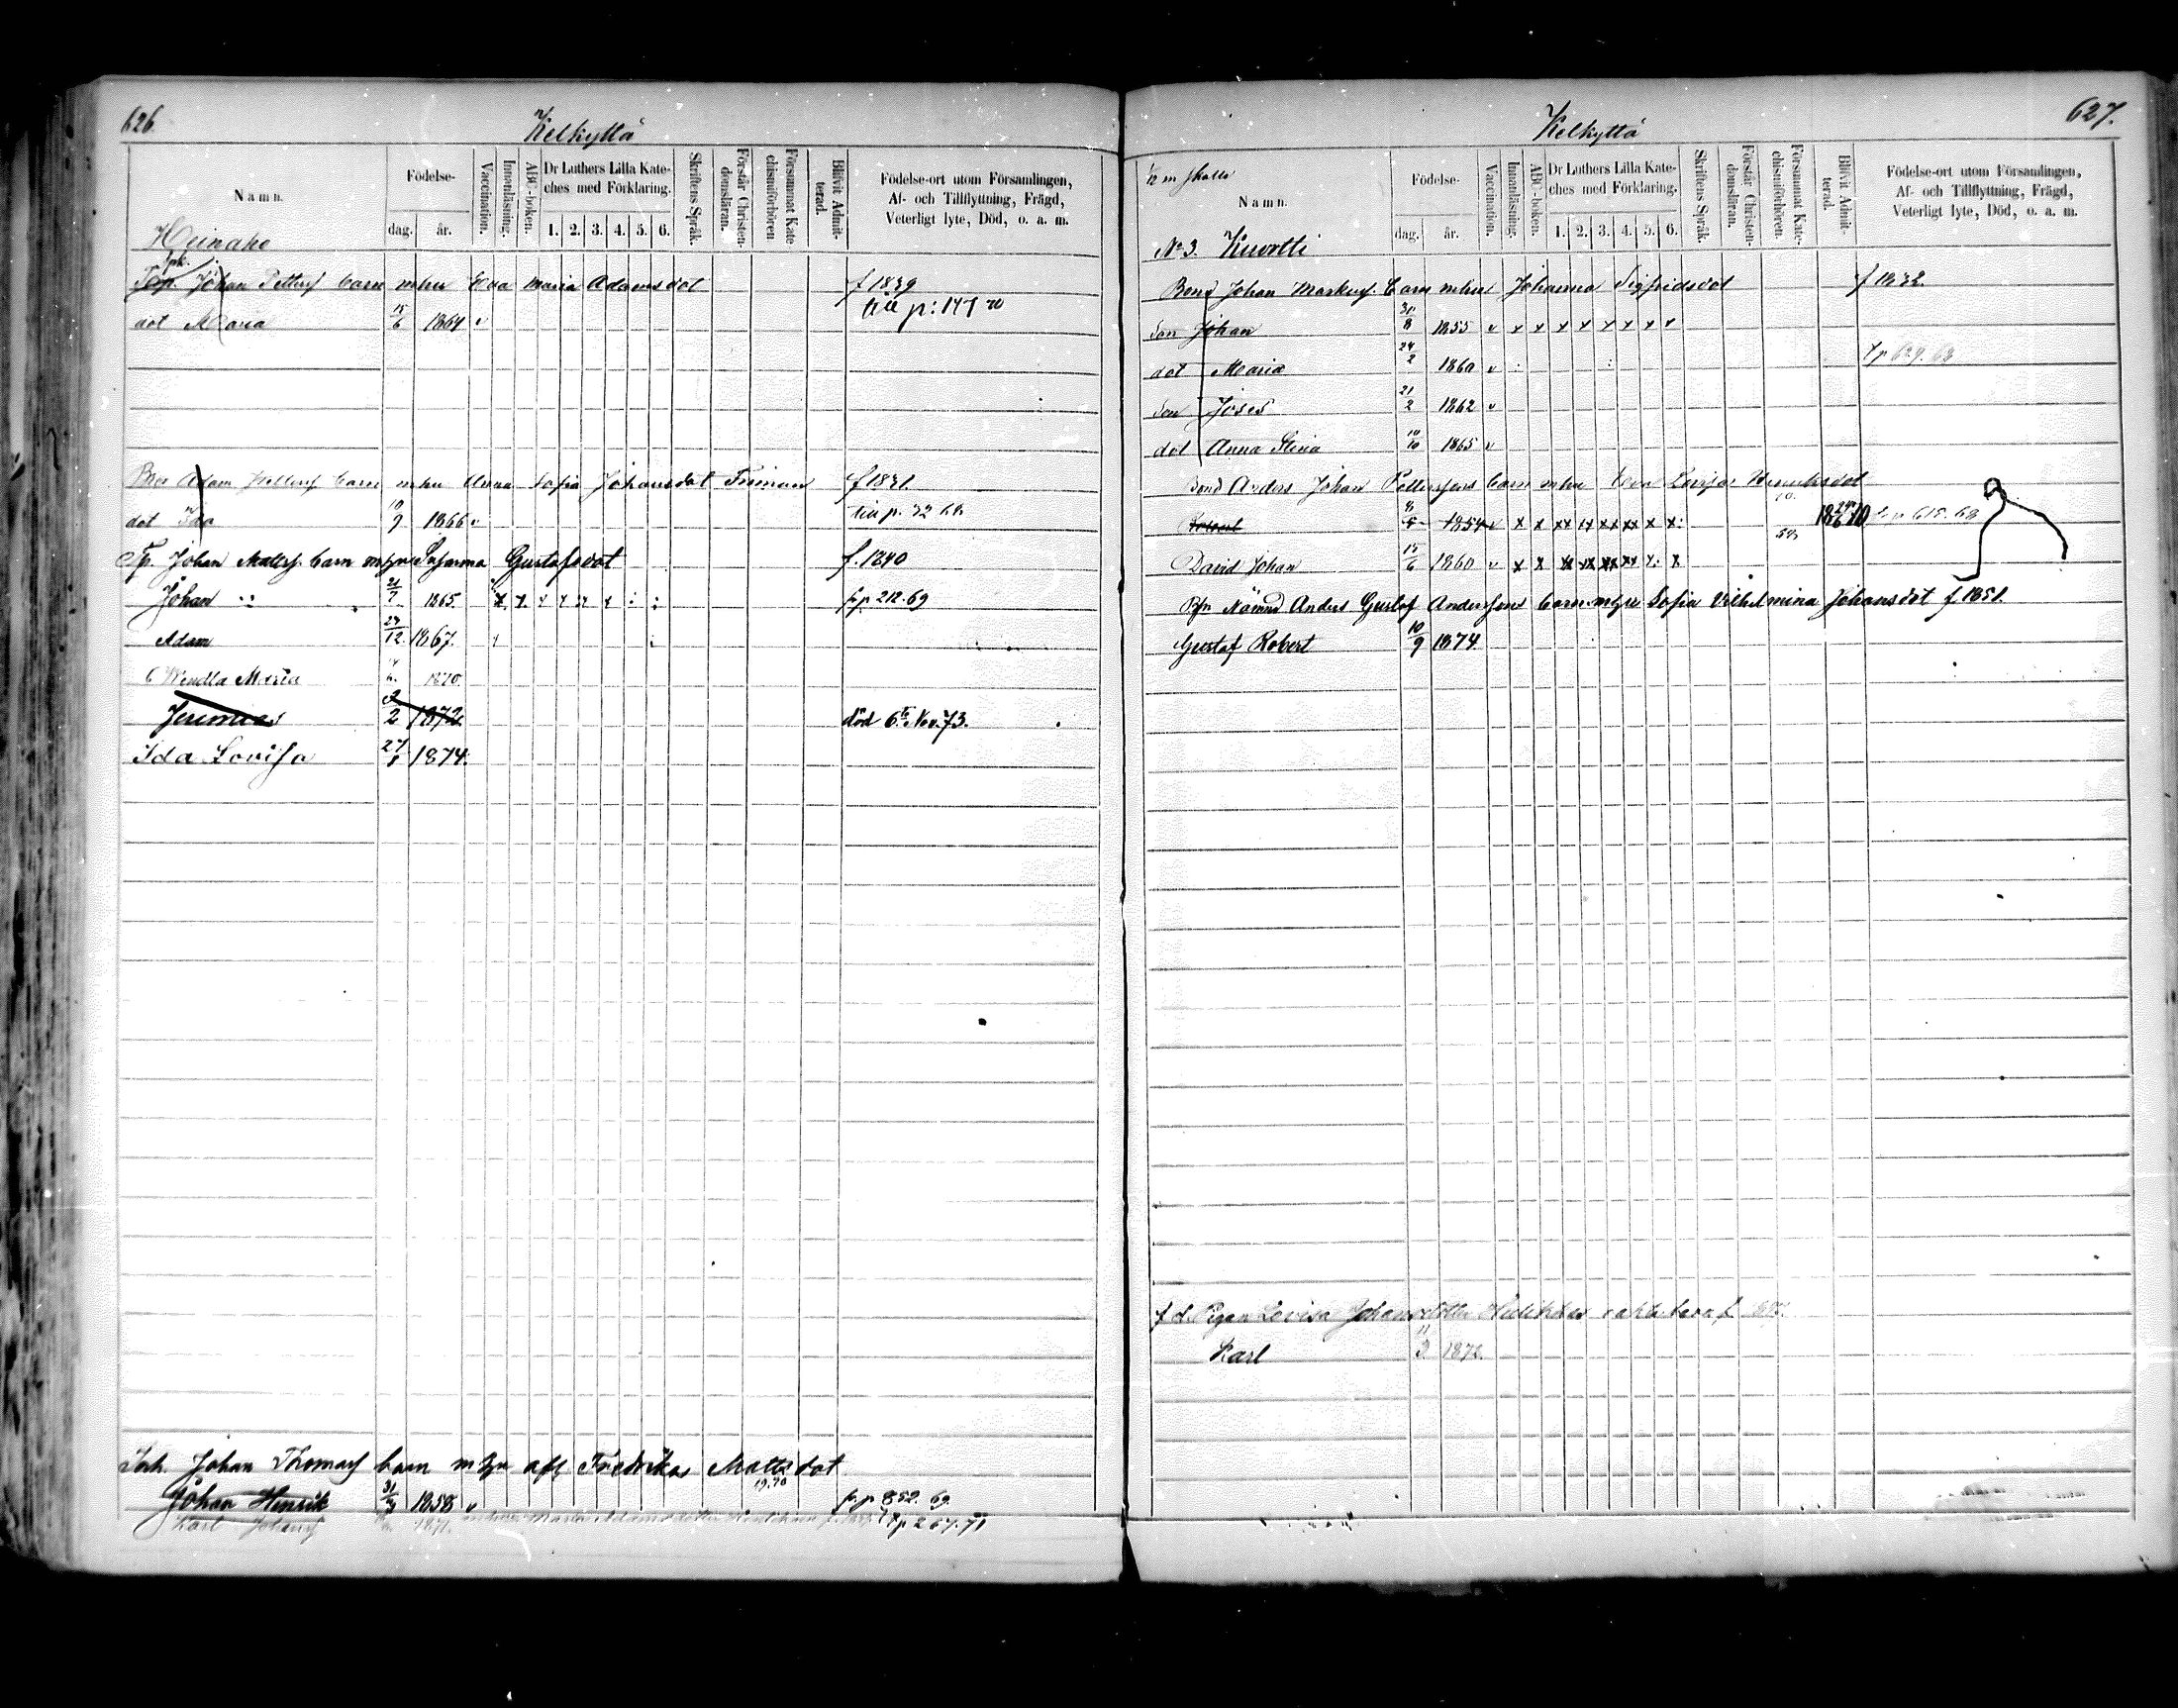 626.
Kelkyttä
Namn.
Födelse-
dag.
år.
Vaccination.
Innanläsning.
ABC-boken.
Dr Luthers Lilla Kate-
ches med Förklaring.
1. 2. 3. 4. 5. 6.
Skriftens Språk.
Förstår Christen-
domsläran.
Försummat Kate-
chismiförhören.
Blifvit Admit-
terad.
Födelse-ort utom Församlingen,
Af- och Tillflyttning, Frägd,
Veterligt lyte, Död, o. a. m.
Heinaho
Johan Petterss barn mhu Eva Maria Adamsdot f 1839
dot Maria 15/6 1864 v till p: 147 70
Adam Petterss barn mhu Anna Sofia Johansdot Friman f 1831.
dot Ida 10/9 1866 v till p. 72 68
Tp. Johan Mattss. barn m hu Susanna Gustafsdot f. 1840
Johan 21/7 1865. fr p 212.69
Adam 29/12 1867.
Wendla Maria 1870.
Jeremias 2/2 1872. död 6te Nov. 73.
Ida Lovisa 27/1 1874.
Inh. Johan Thomass barn m hu afl Fredrika Mattsdot
19.70
Johan Henrik 31/3 1858 v fr. p 852. 69.
Karl Johanss 1871. t p 267. 71
627.
Kelkyttä
1/12 m skatte
Namn.
Födelse-
dag.
år.
Vaccination.
Innanläsning.
ABC-boken.
Dr Luthers Lilla Kate-
ches med Förklaring.
1. 2. 3. 4. 5. 6.
Skriftens Språk.
Förstår Christen-
domsläran.
Försummat Kate-
chismiförhören.
Blifvit Admit-
terad.
Födelse-ort utom Församlingen,
Af- och Tillflyttning, Frägd,
Veterligt lyte, Död, o. a. m.
No 3. Kuvortti
Bond Johan Markuss. barn mhu Johanna Sigfridsdot f 1832.
Son Johan 31/8 1855 v x x x x x x x x
dot Maria 24/2 1860 v t p 629. 68
Son Josef 21/2 1862 v
dot Anna Stina 10/10 1865 v
Bond Anders Johan Petterssons barn mhu Eva Lovisa Henriksdot
Robert 8/5 1854 v x x xx xx xx xx x x: 18 24/6 70
David Johan 15/6 1860 v x x xx xx xx xx x. x
Nämnd Anders Gustaf Anderssons barn m hu Sofia Vilhelmina Johansdot f. 1851.
Gustaf Robert 10/9 1874.
f d. Pigan Lovisa Johansdotter
Karl 11/3 1872.